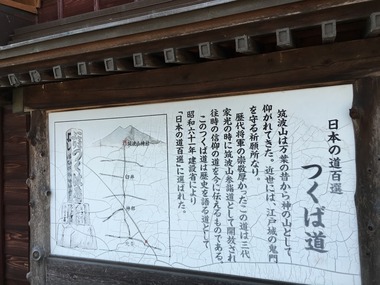 日本の道百選
つくば道
筑波山は万葉の昔から神の山として
仰がれてきた。近世には、江戸城の鬼門
を守る祈願所なり。
歴代将軍の崇敬厚かった。この道は三代
家光の時に筑波山参詣道として開放され
往時の信仰の道を今に伝えるものである。
このつくば道は歴史を語る道として
昭和六十一年建設省により
「日本の道百選」に選ばれた。
筑波山神社
臼井
神郡
北条